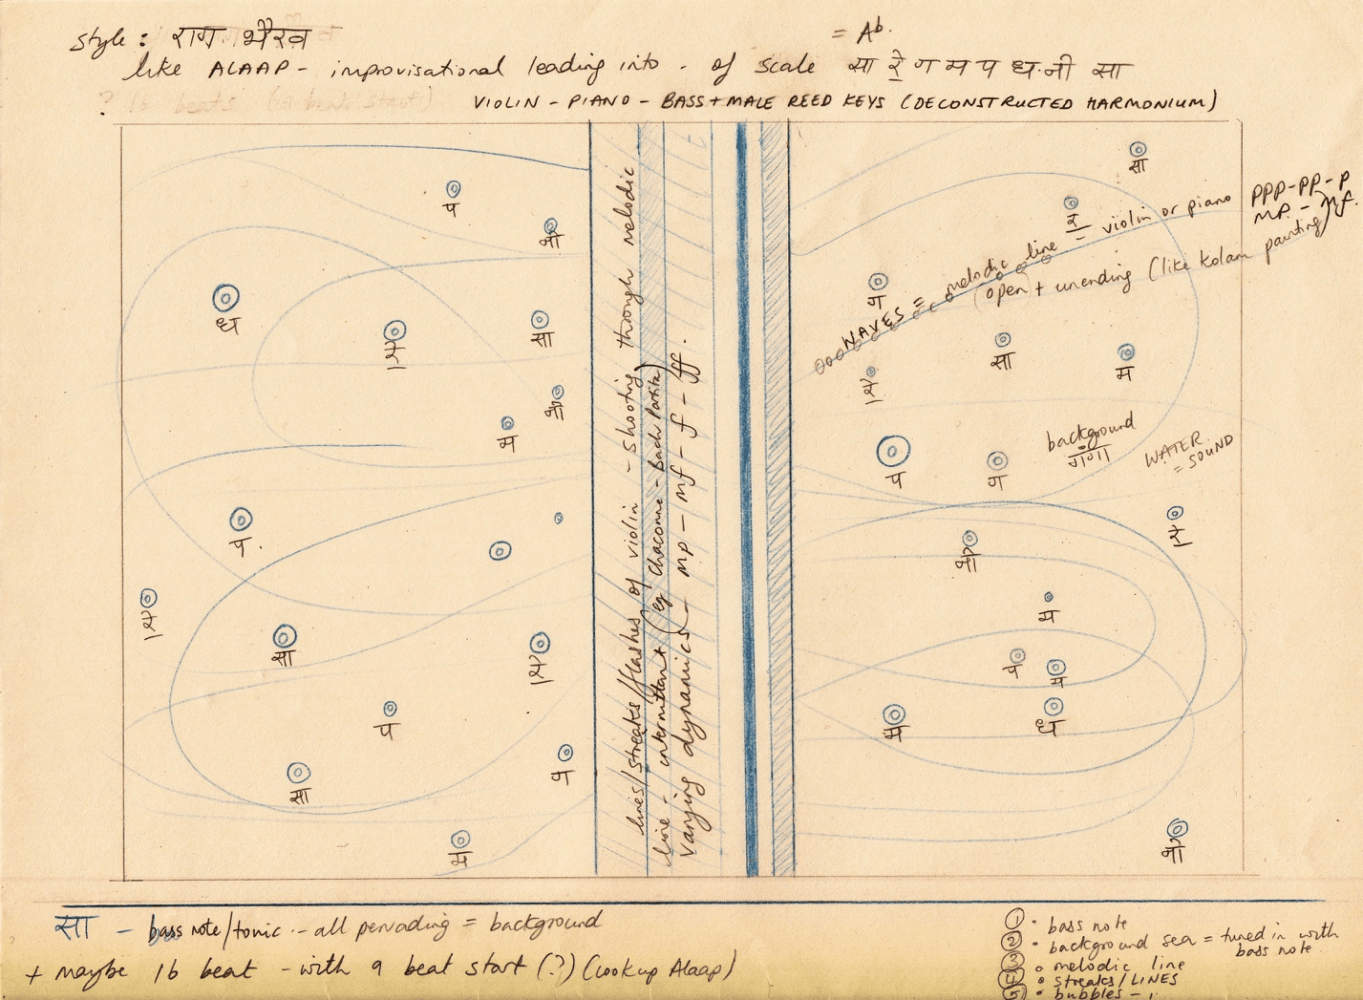 style: राग भैरव
= Ab.
like ALAAP - improvisational leading into - of scale सा रे॒ ग म प ध॒ नी सा
? 16 beats (on beat start)
VIOLIN - PIANO - BASS + MALE REED KEYS (DECONSTRUCTED HARMONIUM)
प
नी
ध
रे॒
सा
नी
म
प.
रे॒
सा
रे॒
प
सा
म
lines/streaks/flashes of violin - shooting through melodic
line - intermittant (eg Chaconne - Bach Partita)
varying dynamics - mp - mf - f - ff.
सा
रे॒
ग
WAVES = melodic line - violin or piano
(open + unending (like kolam painting)
PPP-PP-P
MP - mf.
सा
म
रे॒
प
ग
background
गंगा
WATER
= SOUND
रे॒
नी
म
प
म
ध
म
नी
सा - bass note/tonic - all pervading = background
+ maybe 16 beat - with 9 beat start (?) (look up Alaap)
1 • bass note
2 • background sea = tuned in with
bass note
3 o melodic line
4 o streaks/LINES
5 • bubbles -